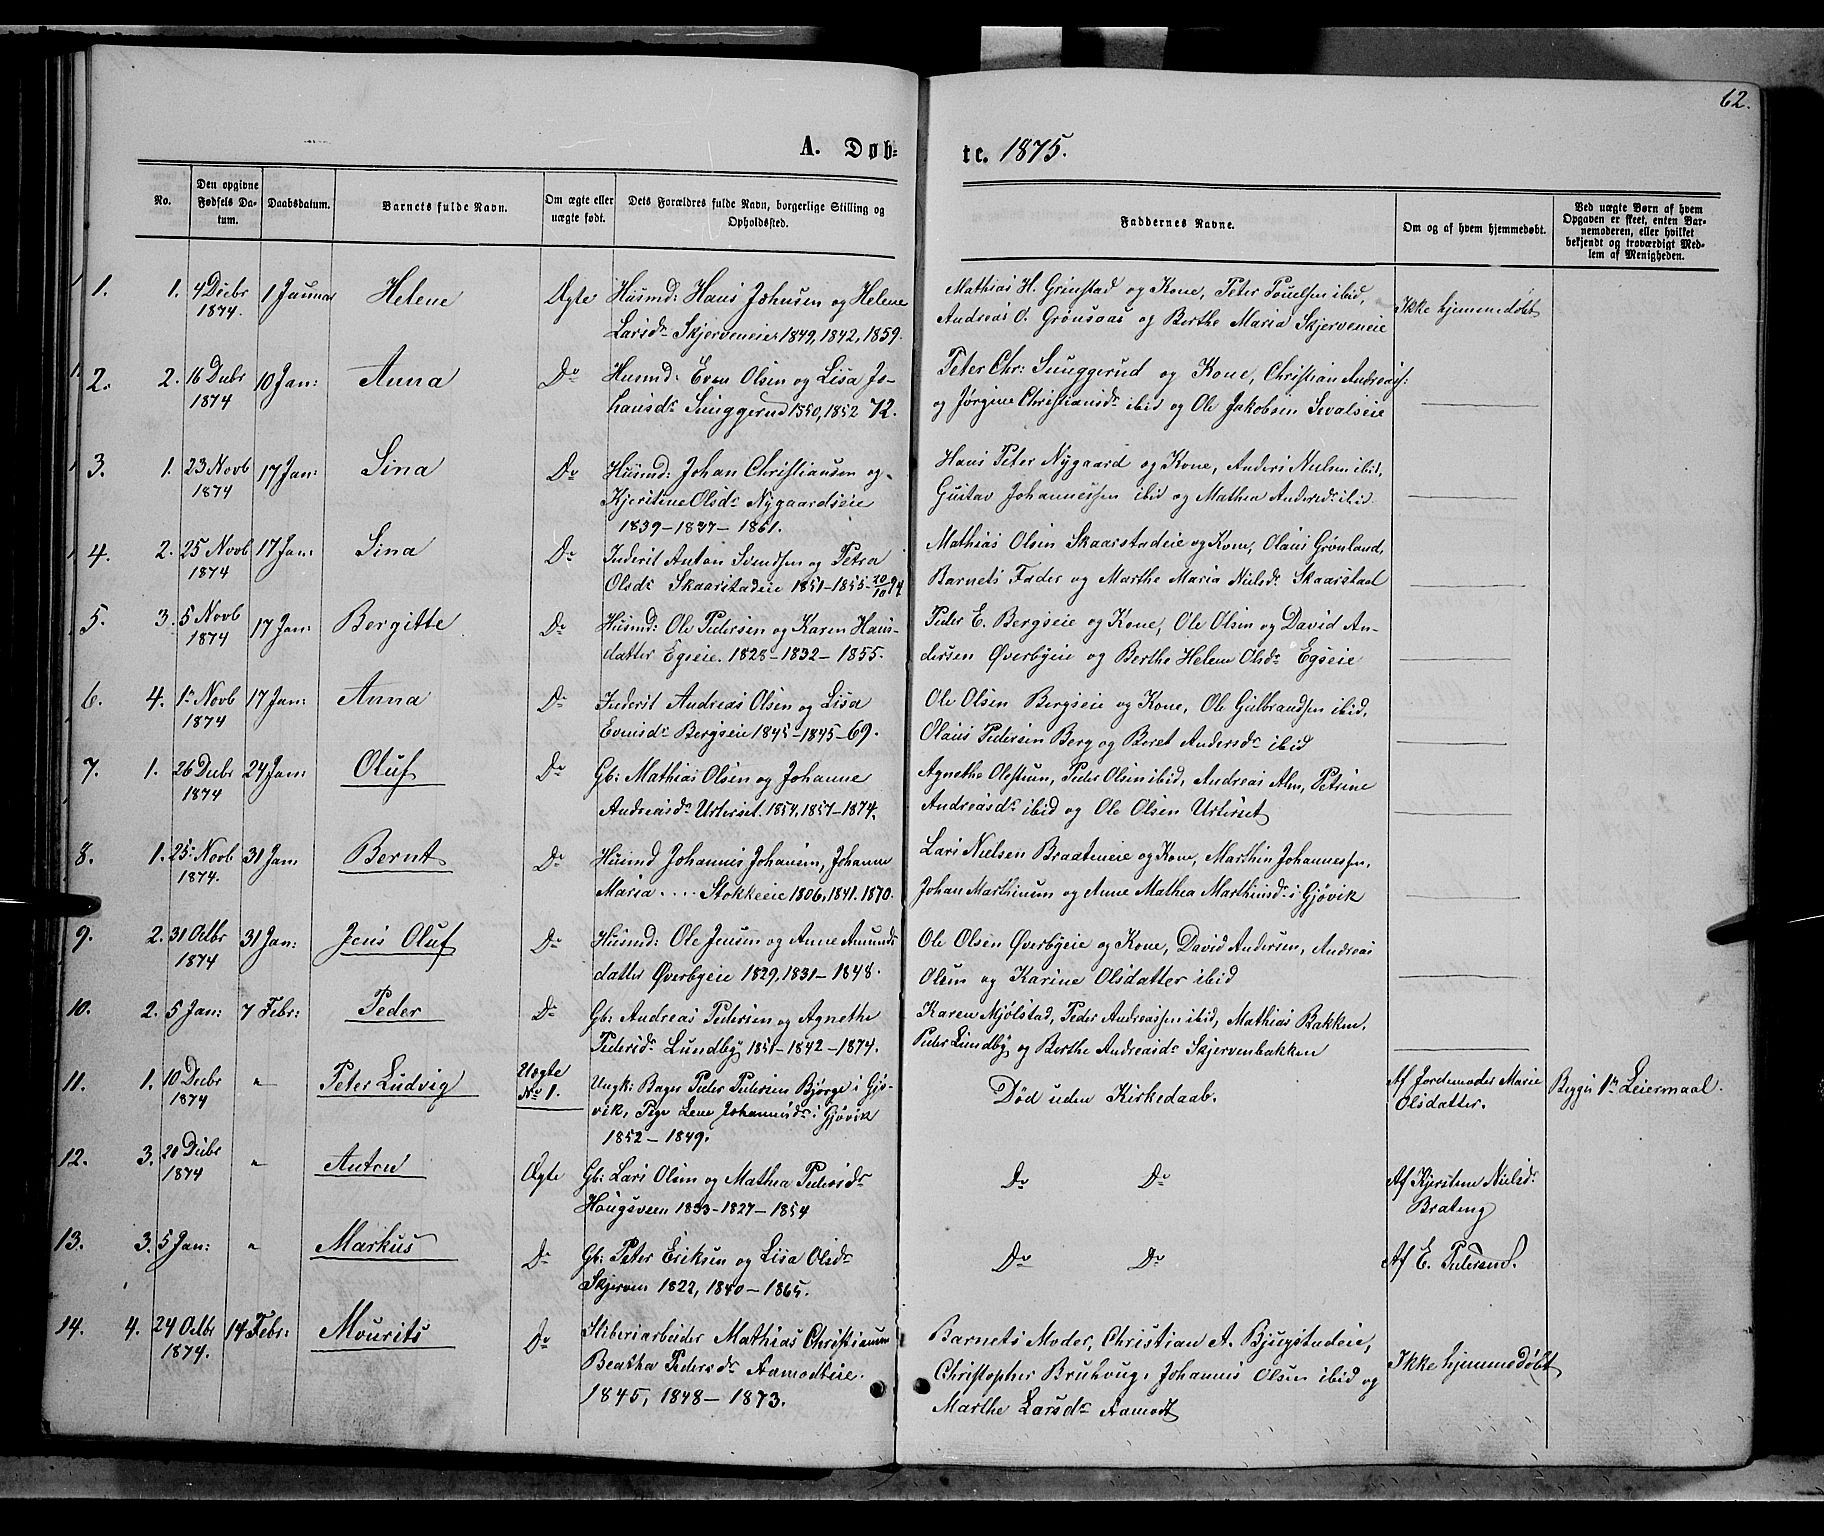 62.
A. Døb=
te. 1875.
No.
Den opgivne
Fødsels Da-
tum.
Daabsdatum.
Barnets fulde Navn.
Om ægte eller
uægte født.
Dets Forældres fulde Navn, borgerlige Stilling og
Opholdssted.
Faddernes Navne.
Om og af hvem hjemmedøbt.
Ved uægte Børn af hvem
Opgaven er skeet, enten Bar-
nemoderen, eller hvilket
bekjendt og troværdigt Med-
lem af Menigheden.
1. 1. 4 Decbr 1 Januar Helene Ægte Husmd: Hans Johnsen og Helene
1874.
Larsdr Skjerveneie 1849, 1842, 1859.
Mathias H. Grinstad og Kone, Peter Poulsen ibid,
Andreas O. Grønsaas og Berthe Maria Skjerveneie
Ikke hjemmedøbt
2. 2. 16 Decbr 10 Jan: Anna Do Husmd: Even Olsen og Lisa Jo-
1874
hansdr Sunggerud 1850, 1852 72.
Peter Chr: Sunggerud og Kone, Christian Andreass:
og Jørgine Christiansdr ibid og Ole Jakobsen Sivalseie
3. 1. 23 Novb 17 Jan: Sina Do Husmd: Johan Christiansen og
1874
Kjerstine Olsdr Nygaardseie
1839-1837-1861.
Hans Peter Nygaard og Kone, Anders Nielsen ibid,
Gustav Johannessen ibid og Mathea Andersdr ibid
4. 2. 25 Novb 17 Jan: Sina Do Inderst Anton Svendsen og Petra
1874
Olsdr Skaarstadeie 1851-1855-20/10 74
Mathias Olsen Skaarstadeie og Kone, Olaus Grønland,
Barnets Fader og Marthe Maria Nielsdr Skaarstad
5. 3. 5 Novb 17 Jan: Bergitte Do Husmd: Ole Pedersen og Karen Hans-
1874
datter Egseie. 1828-1832-1855.
Peder E. Bergseie og Kone, Ole Olsen og David An-
dersen Øverbyeie og Berthe Helene Olsdr Egseie
6. 4. 1 Novb 17 Jan: Anna Do Inderst Andreas Olsen og Lisa
1874
Evensdr Bergseie 1845-1845-69.
Ole Olsen Bergseie og Kone, Ole Gulbrandsen ibid,
Olaus Pedersen Berg og Beret Andersdr ibid
7. 1. 26 Decbr 24 Jan: Oluf Do Gb: Mathias Olsen og Johanne
1874
Andreasdr Urterset. 1854, 1857-1874.
Agnethe Olestuen, Peder Olsen ibid, Andreas Alm, Petrine
Andreasdr ibid og Ole Olsen Urterset
8. 1. 25 Novb 31 Jan Bernt Do Husmd Johannes Johansen, Johanne
1874.
Maria .... Stokkeeie 1806, 1841. 1870.
Lars Nielsen Braateneie og Kone, Marthin Johannessen,
Johan Marthinsen og Anne Mathea Marthinsdr i Gjøvik
9. 2. 31 Octbr 31 Jan: Jens Oluf Do Husmd: Ole Jensen og Anne Amunds
1874
datter Øverbyeie 1829, 1831-1848.
Ole Olsen Øverbyeie og Kone, David Andersen, Andreas
Olsen og Karine Olsdatter ibid
10. 2. 5 Jan: 7 Febr: Peder Do Gb: Andreas Pedersen og Agnethe
Pedersdr Lundby 1851-1842-1874.
Karen Mjølstad, Peder Andreassen ibid, Mathias Bakken,
Peder Lundby og Berthe Andreasdr Skjervenbakken
11. 1. 10 Decbr " Peter Ludvig Uægte Ungk: Bager Peder Pedersen Bjørge i Gjø-
1874 No 1.
vik, Pige Lene Johannesdr i Gjøvik
1852-1849.
Død uden Kirkedaab.
Af Jordemoder Marie
Olsdatter.
Begges 1ste Leiermaal.
12. 3. 20 Decbr " Anton Ægte Gb: Lars Olsen og Mathea Pedersdr
1874
Haugsveen 1833-1827-1854
Do Do
Af Kjerstine Nielsdr
Brateng
13. 3. 5 Jan: " Markus Do Gb: Peter Eriksen og Lisa Olsdr
Skjerven 1822, 1840-1865.
Do Do
Af E. Pedersen.
14. 4. 24 Octbr 14 Febr: Mourits Do Sliberiarbeider Mathias Christiansen
1874.
Beatha Pedersdr Aamodteie.
1845, 1848-1873.
Barnets Moder, Christian A. Bjugstadeie,
Christopher Bruhaug, Johannes Olsen ibid og
Marthe Larsdr Aamodt
Ikke hjemmedøbt